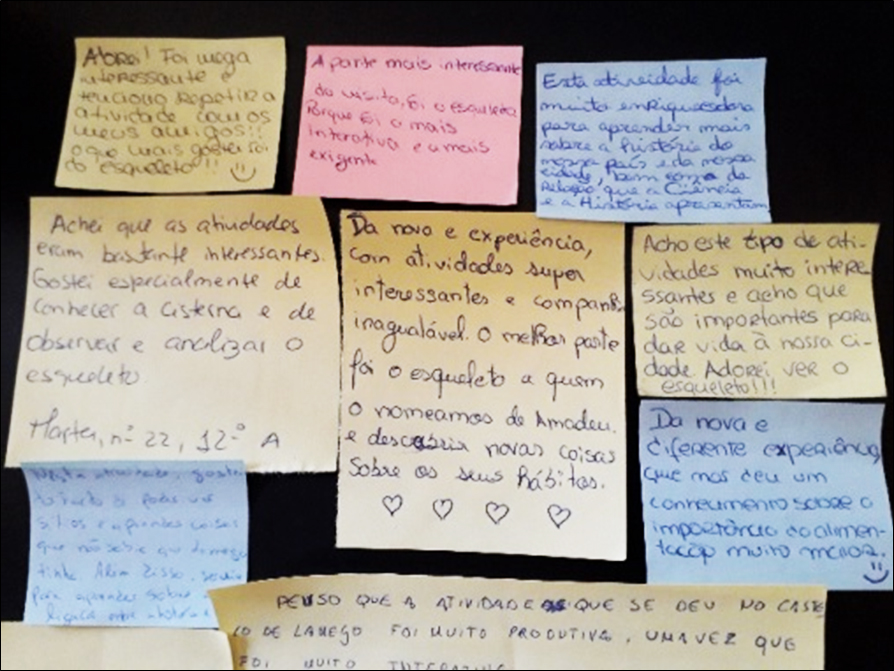 Adorei! Foi mega
interessante e
tenciono repetir a
atividade com os
meus amigos!!
o que mais gostei foi
do esqueleto!!!
A parte mais interessante
da visita, foi o esqueleto
Porque foi o mais
interativa e a mais
exigente
Esta atividade foi
muito enriquecedora
para aprender mais
sobre a história do
nosso país e da nossa
cidade, bem como da
relação que a Ciência
e a História apresentam
Achei que as atividades
eram bastante interessantes.
Gostei especialmente de
conhecer a cisterna e de
observar e analizar o
esqueleto
nº 22, 12º A
Da nova e experiência,
com atividades super
interessantes e companhia
inagualável. O melhor parte
foi o esqueleto a quem
o nomeamos de Amadeu.
e descobrir novas coisas
sobre os seus hábitos.
Acho este tipo de ati-
vidades muito intere-
ssantes e acho que
são importantes para
dar vida à nossa ci-
dade. Adorei ver o
esqueleto!!!
Da nova e
diferente experiência,
que nos deu um
conhecimento sobre a
importância da alimen-
tação muito maior.
Nesta atividade, gostei
de poder ver
sítios e aprender coisas
que não sabia que Lamego
tinha. Além disso,
para aprender sobre a
ligação entre a história e
PENSO QUE A ATIVIDADE QUE SE DEU NO CASTE
LO DE LAMEGO FOI MUITO PRODUTIVA, UMA VEZ QUE
FOI MUITO